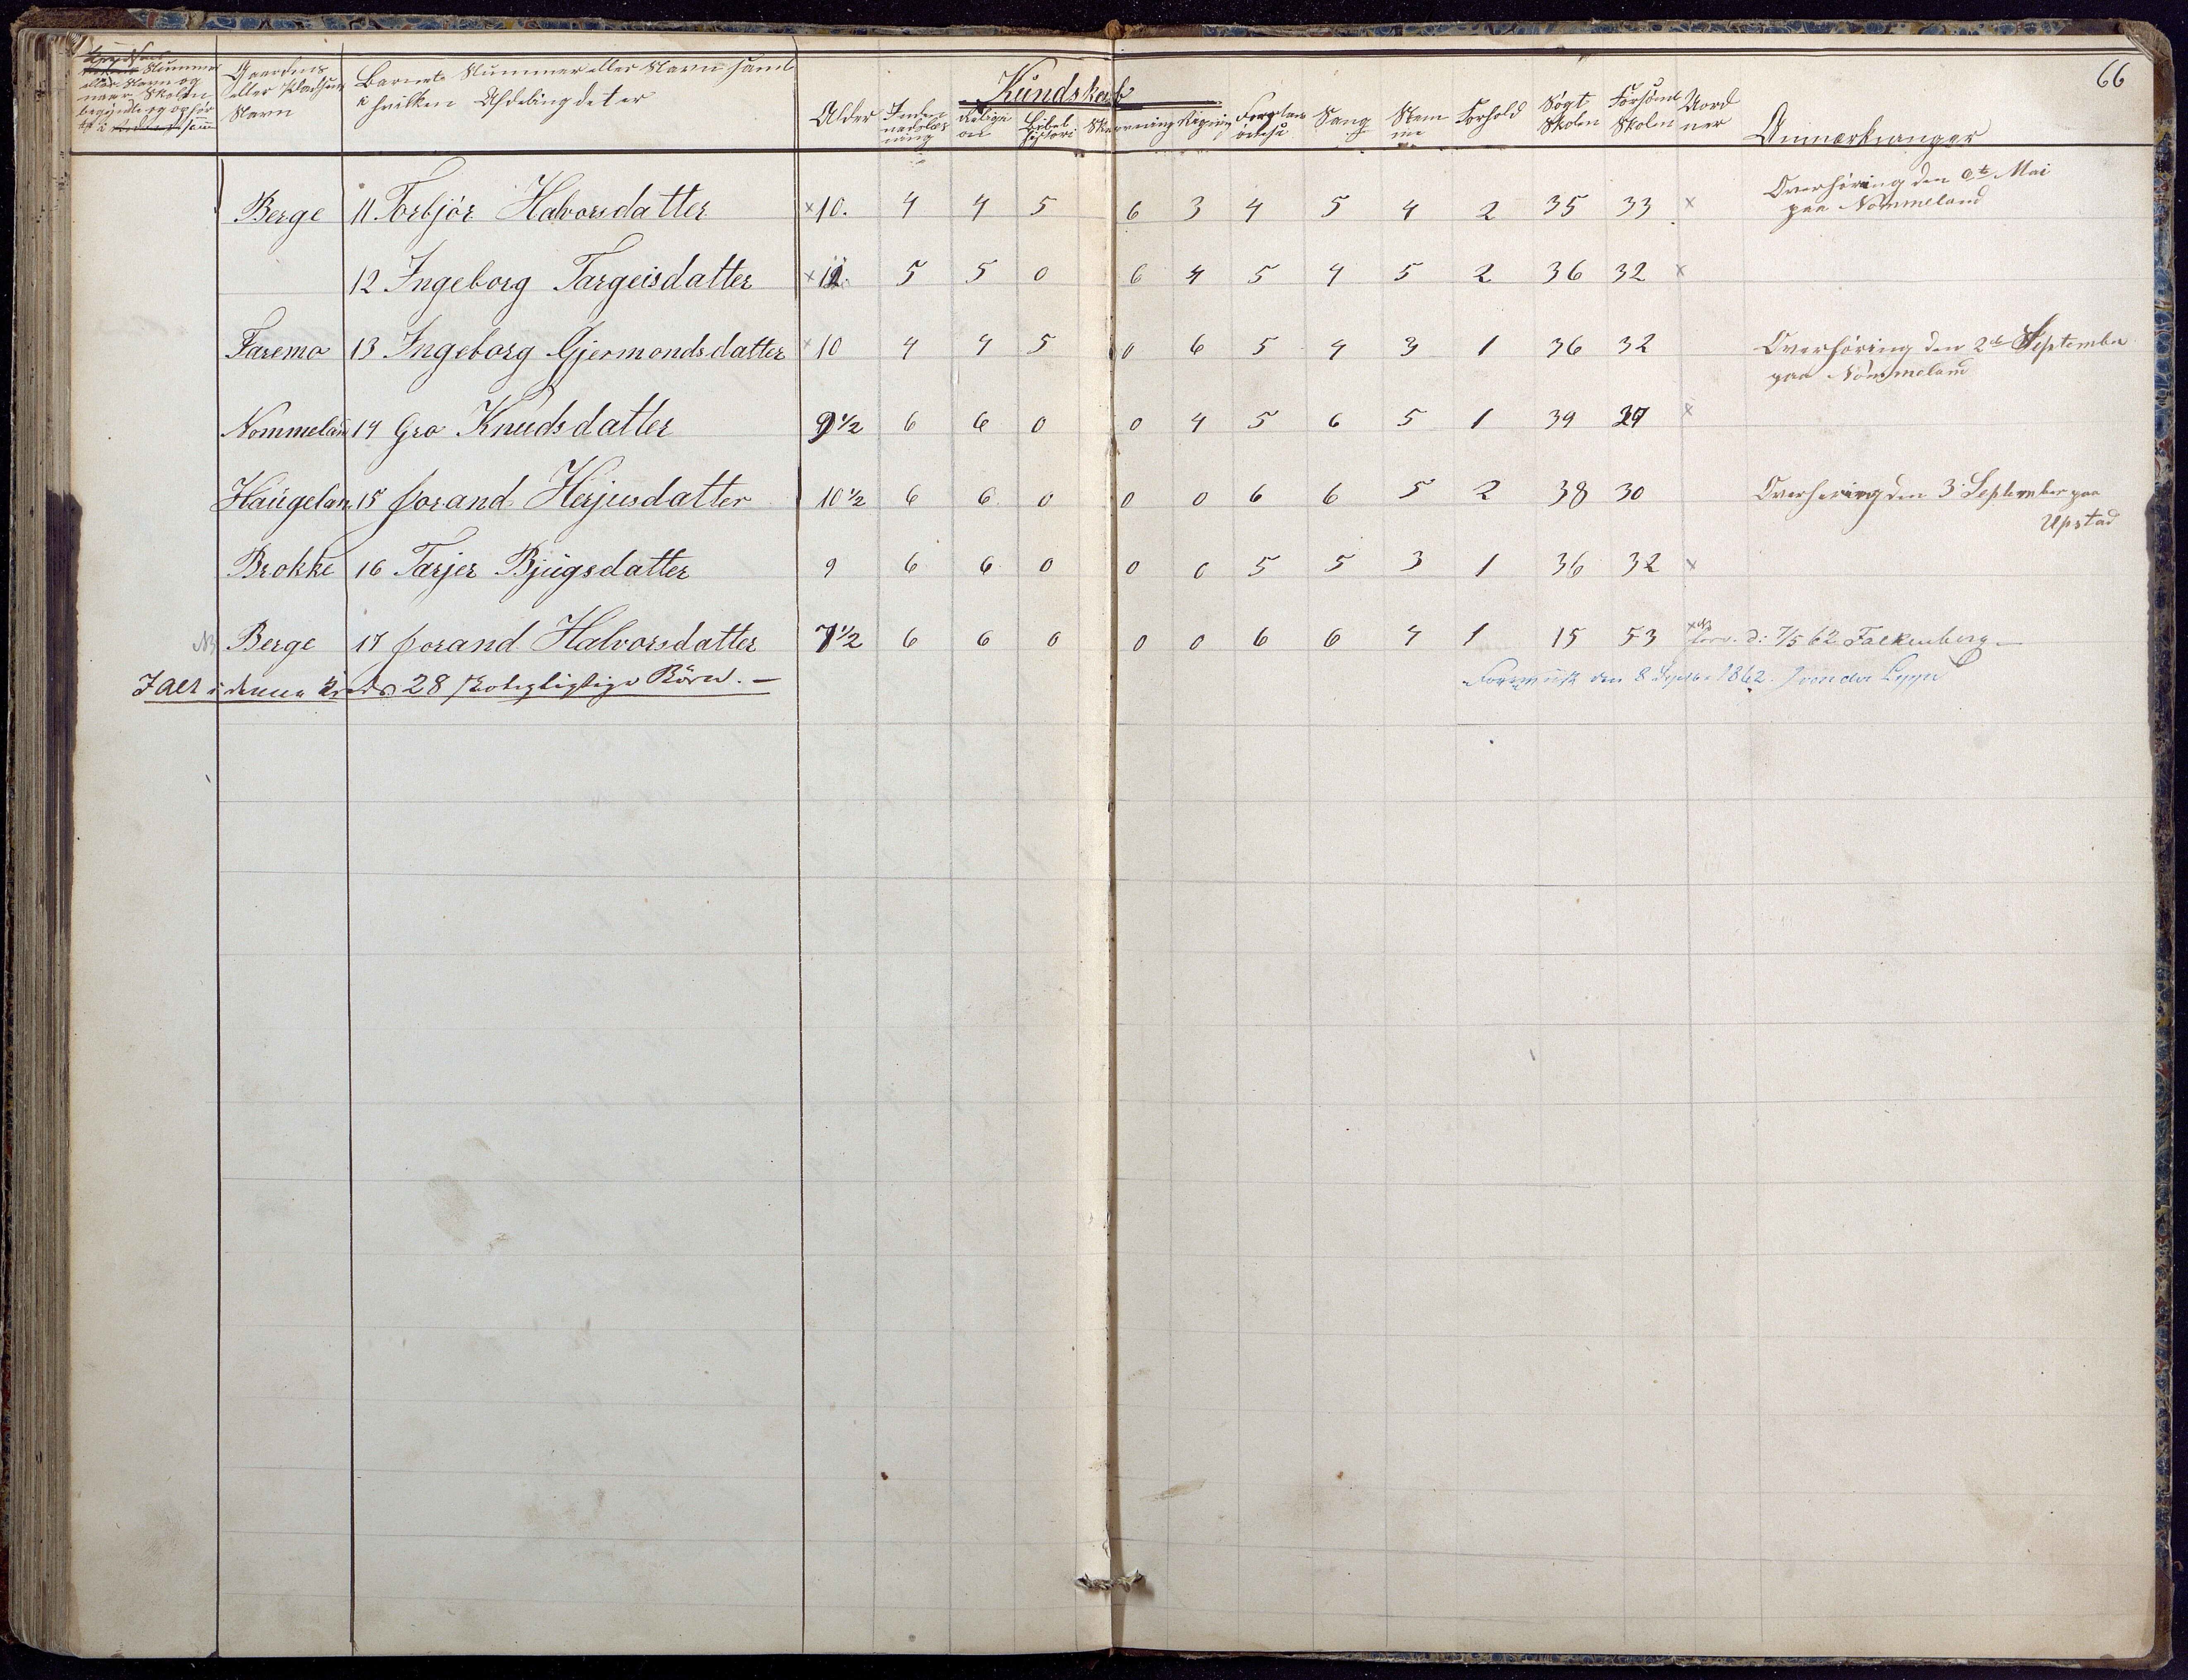 66
Nummer
eller Navn og
naar Skolen
begyndte og ophør
Gaardens
eller Pladsens
Navn
Barnets Nummer eller Navn samt
i hvilken Afdeling det er
Kundskab
Alder Indenadslæsning Religion Bibelhistori Skrivning Regning Sang Stemme Forhold Søgt Skolen Forsømt Skolen Anmærkninger
Berge 11 Torbjör Halvorsdatter × 10. 4 4 5 6 3 4 5 4 2 35 33 × Overhöring den Mai
paa Nommeland
12 Ingeborg Targeisdatter × 12. 5 5 0 6 4 5 4 5 2 36 32 ×
Faremo 13 Ingeborg Gjermondsdatter × 10 4 4 5 0 6 5 4 3 1 36 32 Overhöring den 2de September
paa Nommeland
Nommeland 14 Gro Knudsdatter 9 1/2 6 6 0 0 4 5 6 5 1 39 ×
Haugeland 15 Jorand Herjusdatter 10 1/2 6 6 0 0 0 6 6 5 2 38 30 Overhøring den 3 September paa
Upstad
Brokke 16 Tarjer Bjugsdatter 9 6 6 0 0 0 5 5 3 1 36 32 ×
Berge 17 Jorand Halvorsdatter 7 1/2 6 6 0 0 0 6 6 4 1 15 53 d: 7/5 62 Falkenberg
Ialt i denne Kreds 28 skolepligtige Börn. – den 8 Septbr 1862.